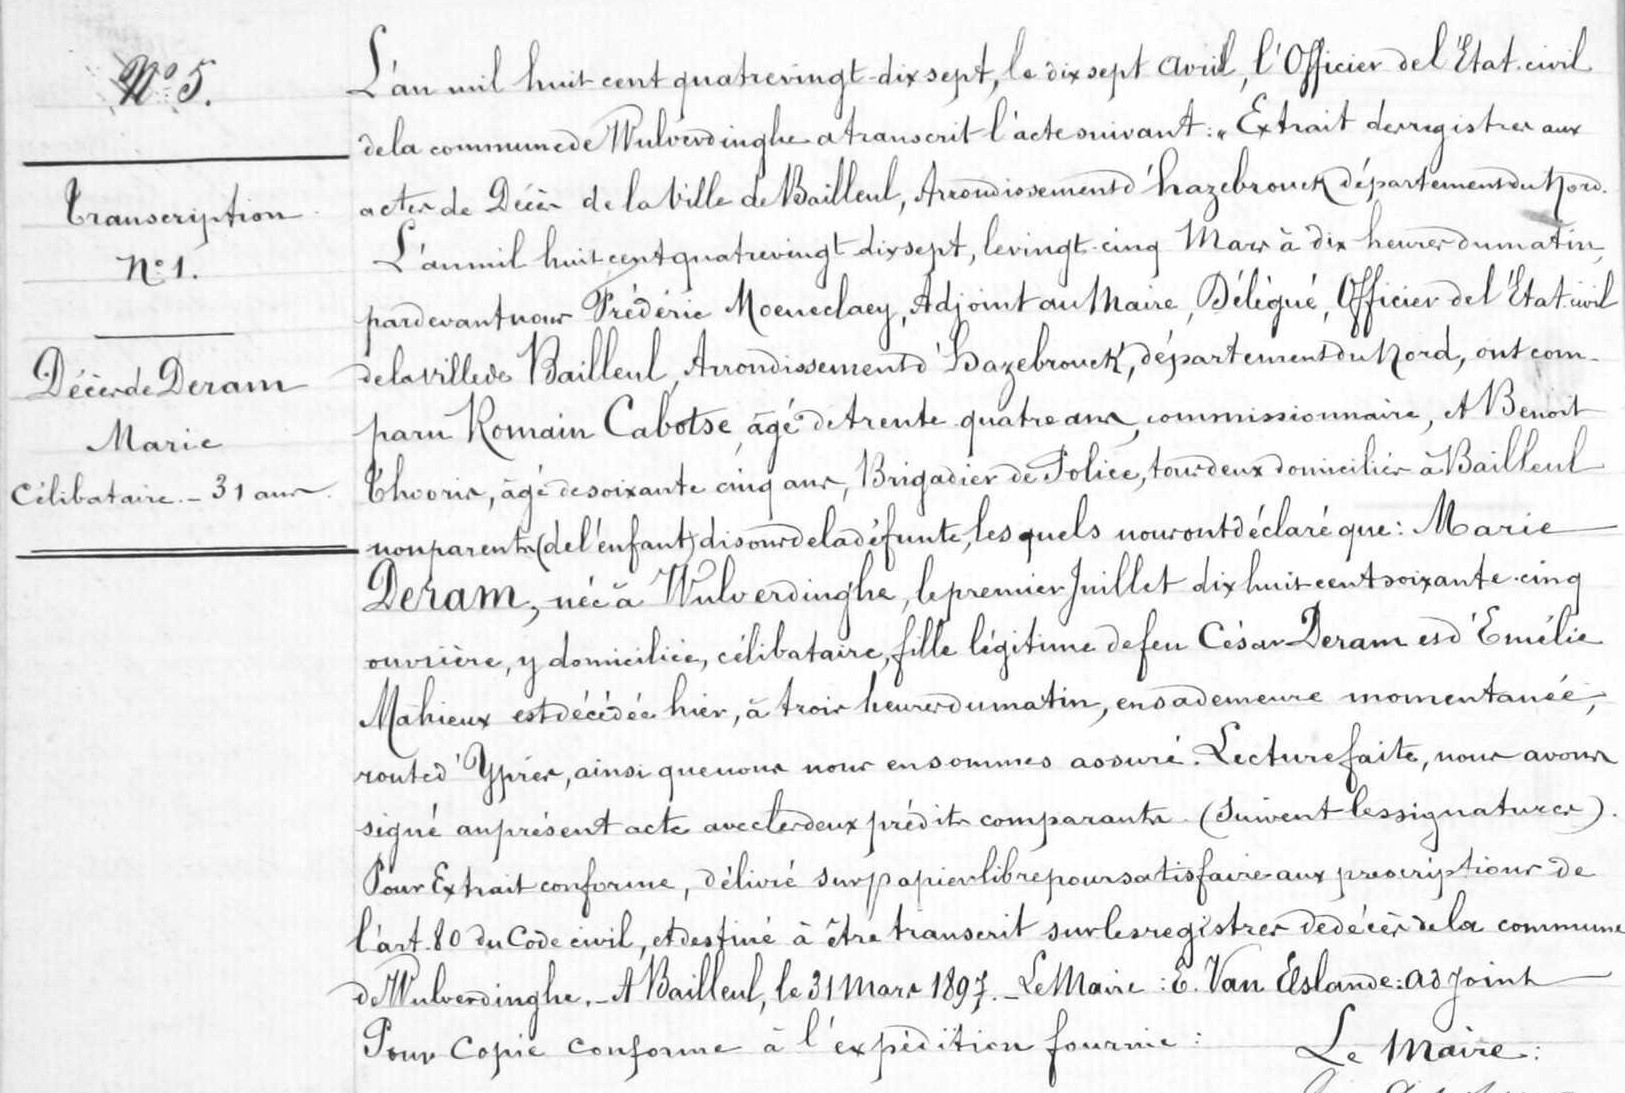 N° 5.
Transcription
N° 1.
Décès de Deram
Marie
Célibataire - 31 ans.
L'an mil huit cent quatre vingt dix sept, le dix sept avril, l'Officier de l'Etat civil
de la commune de Wulverdinghe a transcrit l'acte suivant : « Extrait des registres aux
actes de Décès de la Ville de Bailleul, Arrondissement d'hazebrouck département du Nord.
L'an mil huit cent quatre vingt dix sept, le vingt-cinq Mars à dix heures du matin,
pardevant nous Frédéric Moeneclaey, Adjoint au Maire, Délégué, Officier de l'Etat civil
de la ville de Bailleul, Arrondissement d'hazebrouck, département du Nord, ont com-
paru Romain Cabotse, âgé de trente quatre ans, commissionnaire, et Benoit
Thooris, âgé de soixante cinq ans, Brigadier de Police, tous deux domiciliés à Bailleul
non parents (de l'enfant) disons de la défunte, les quels nous ont déclaré que : Marie
Deram, née à Wulverdinghe, le premier Juillet dix huit cent soixante-cinq
ouvrière, y domiciliée, célibataire, fille légitime de feu César Deram et d'Emélie
Mahieux est décédée hier, à trois heures du matin, en sa demeure momentanée,
route d'Ypres, ainsi que nous nous en sommes assuré. Lecture faite, nous avons
signé au présent acte avec les deux prédits comparants. (Suivent les signatures).
Pour Extrait conforme, délivré sur papier libre pour satisfaire aux prescriptions de
l'art. 80 du Code civil, et destiné à être transcrit sur les registres de décès de la commune
de Wulverdinghe. - A Bailleul, le 31 Mars 1897. - Le Maire : E. Van Eslande : adjoint
Pour Copie conforme à l'expédition fournie :
Le Maire :